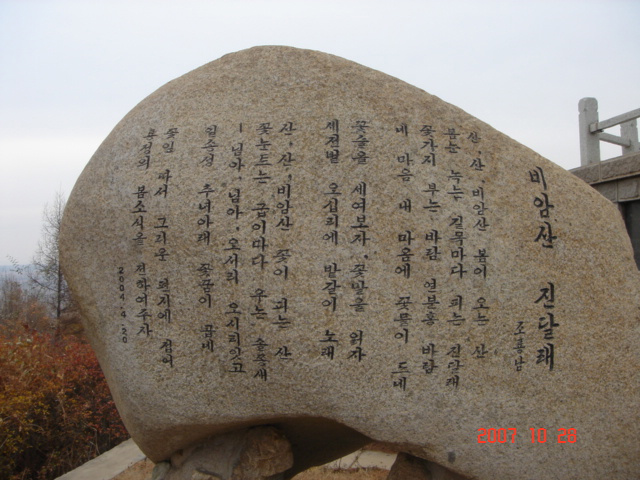 비암산 진달래
조룡남
산, 산 비암산 봄이 오는 산
봄눈 녹는 길목마다 피는 진달래
꽃가지 부는 바람 연분홍 바람
네 마음 내 마음에 꽃물이 드네
꽃술을 세여보자, 꽃말을 읽자
세전벌 오십리에 밭갈이 노래
산, 산, 비암산 꽃이 피는 산
꽃눈트는 굽이마다 우는 솔쪽새
-님아, 님아, 오서리 오시리잇고
일송정 추녀아래 꽃꿈이 곱네
꽃잎 따서 그리운 편지에 적어
룡정의 봄소식을 전하여주자
2004.4.20
2007 10 28